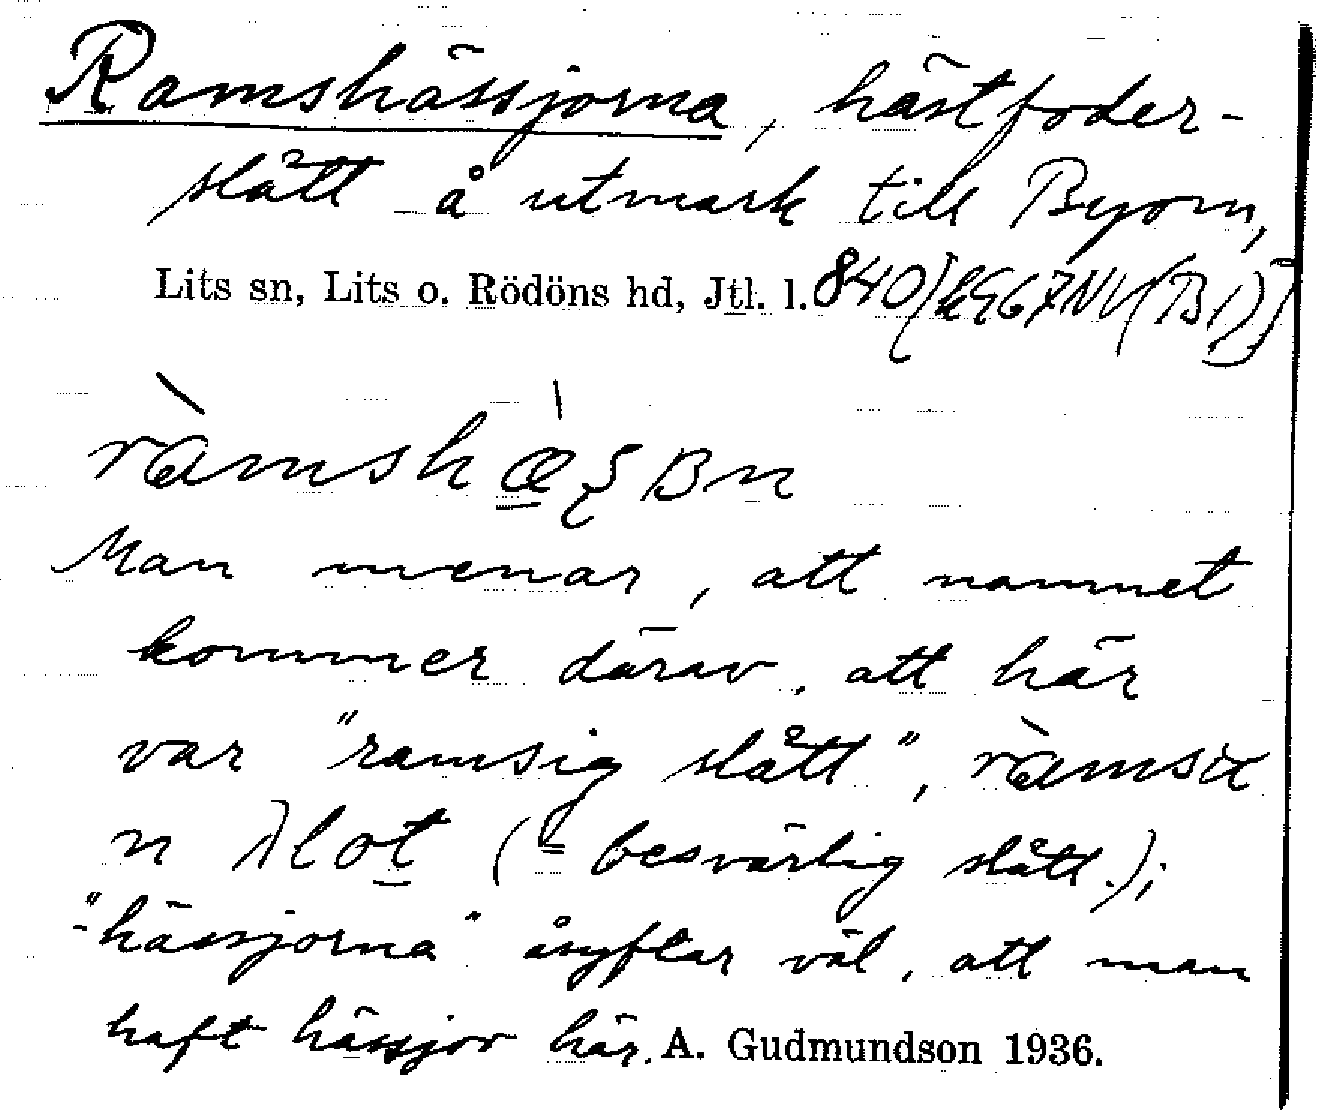 Ramshässjorna, hästfoder-
slått å utmark till Byom,
Lits sn, Lits o. Rödöns hd, Jtl. l. 840
Man menar, att namnet
kommer därav, att här
var "ramsig slått", ràmsıt
n slot (= besvärlig slått.);
"-hässjorna" åsyftar väl, att man
haft hässjor här. A. Gudmundson 1936.